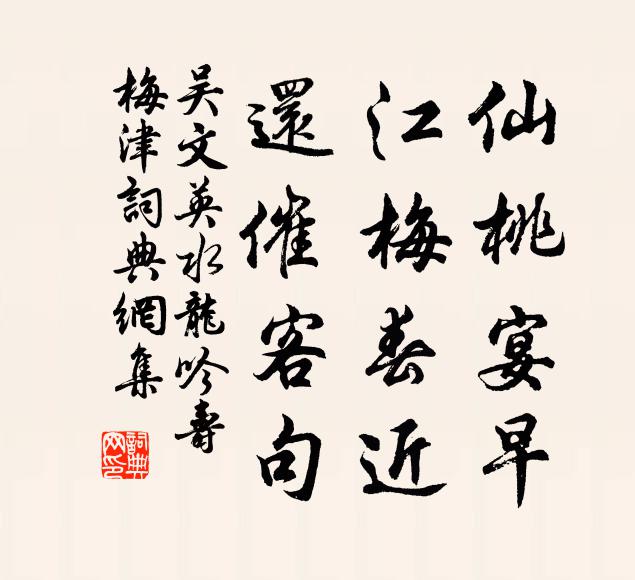 仙桃宴早
江梅春近
還催客句
吴文英水龍吟壽
梅津詞典網集
詞典网印